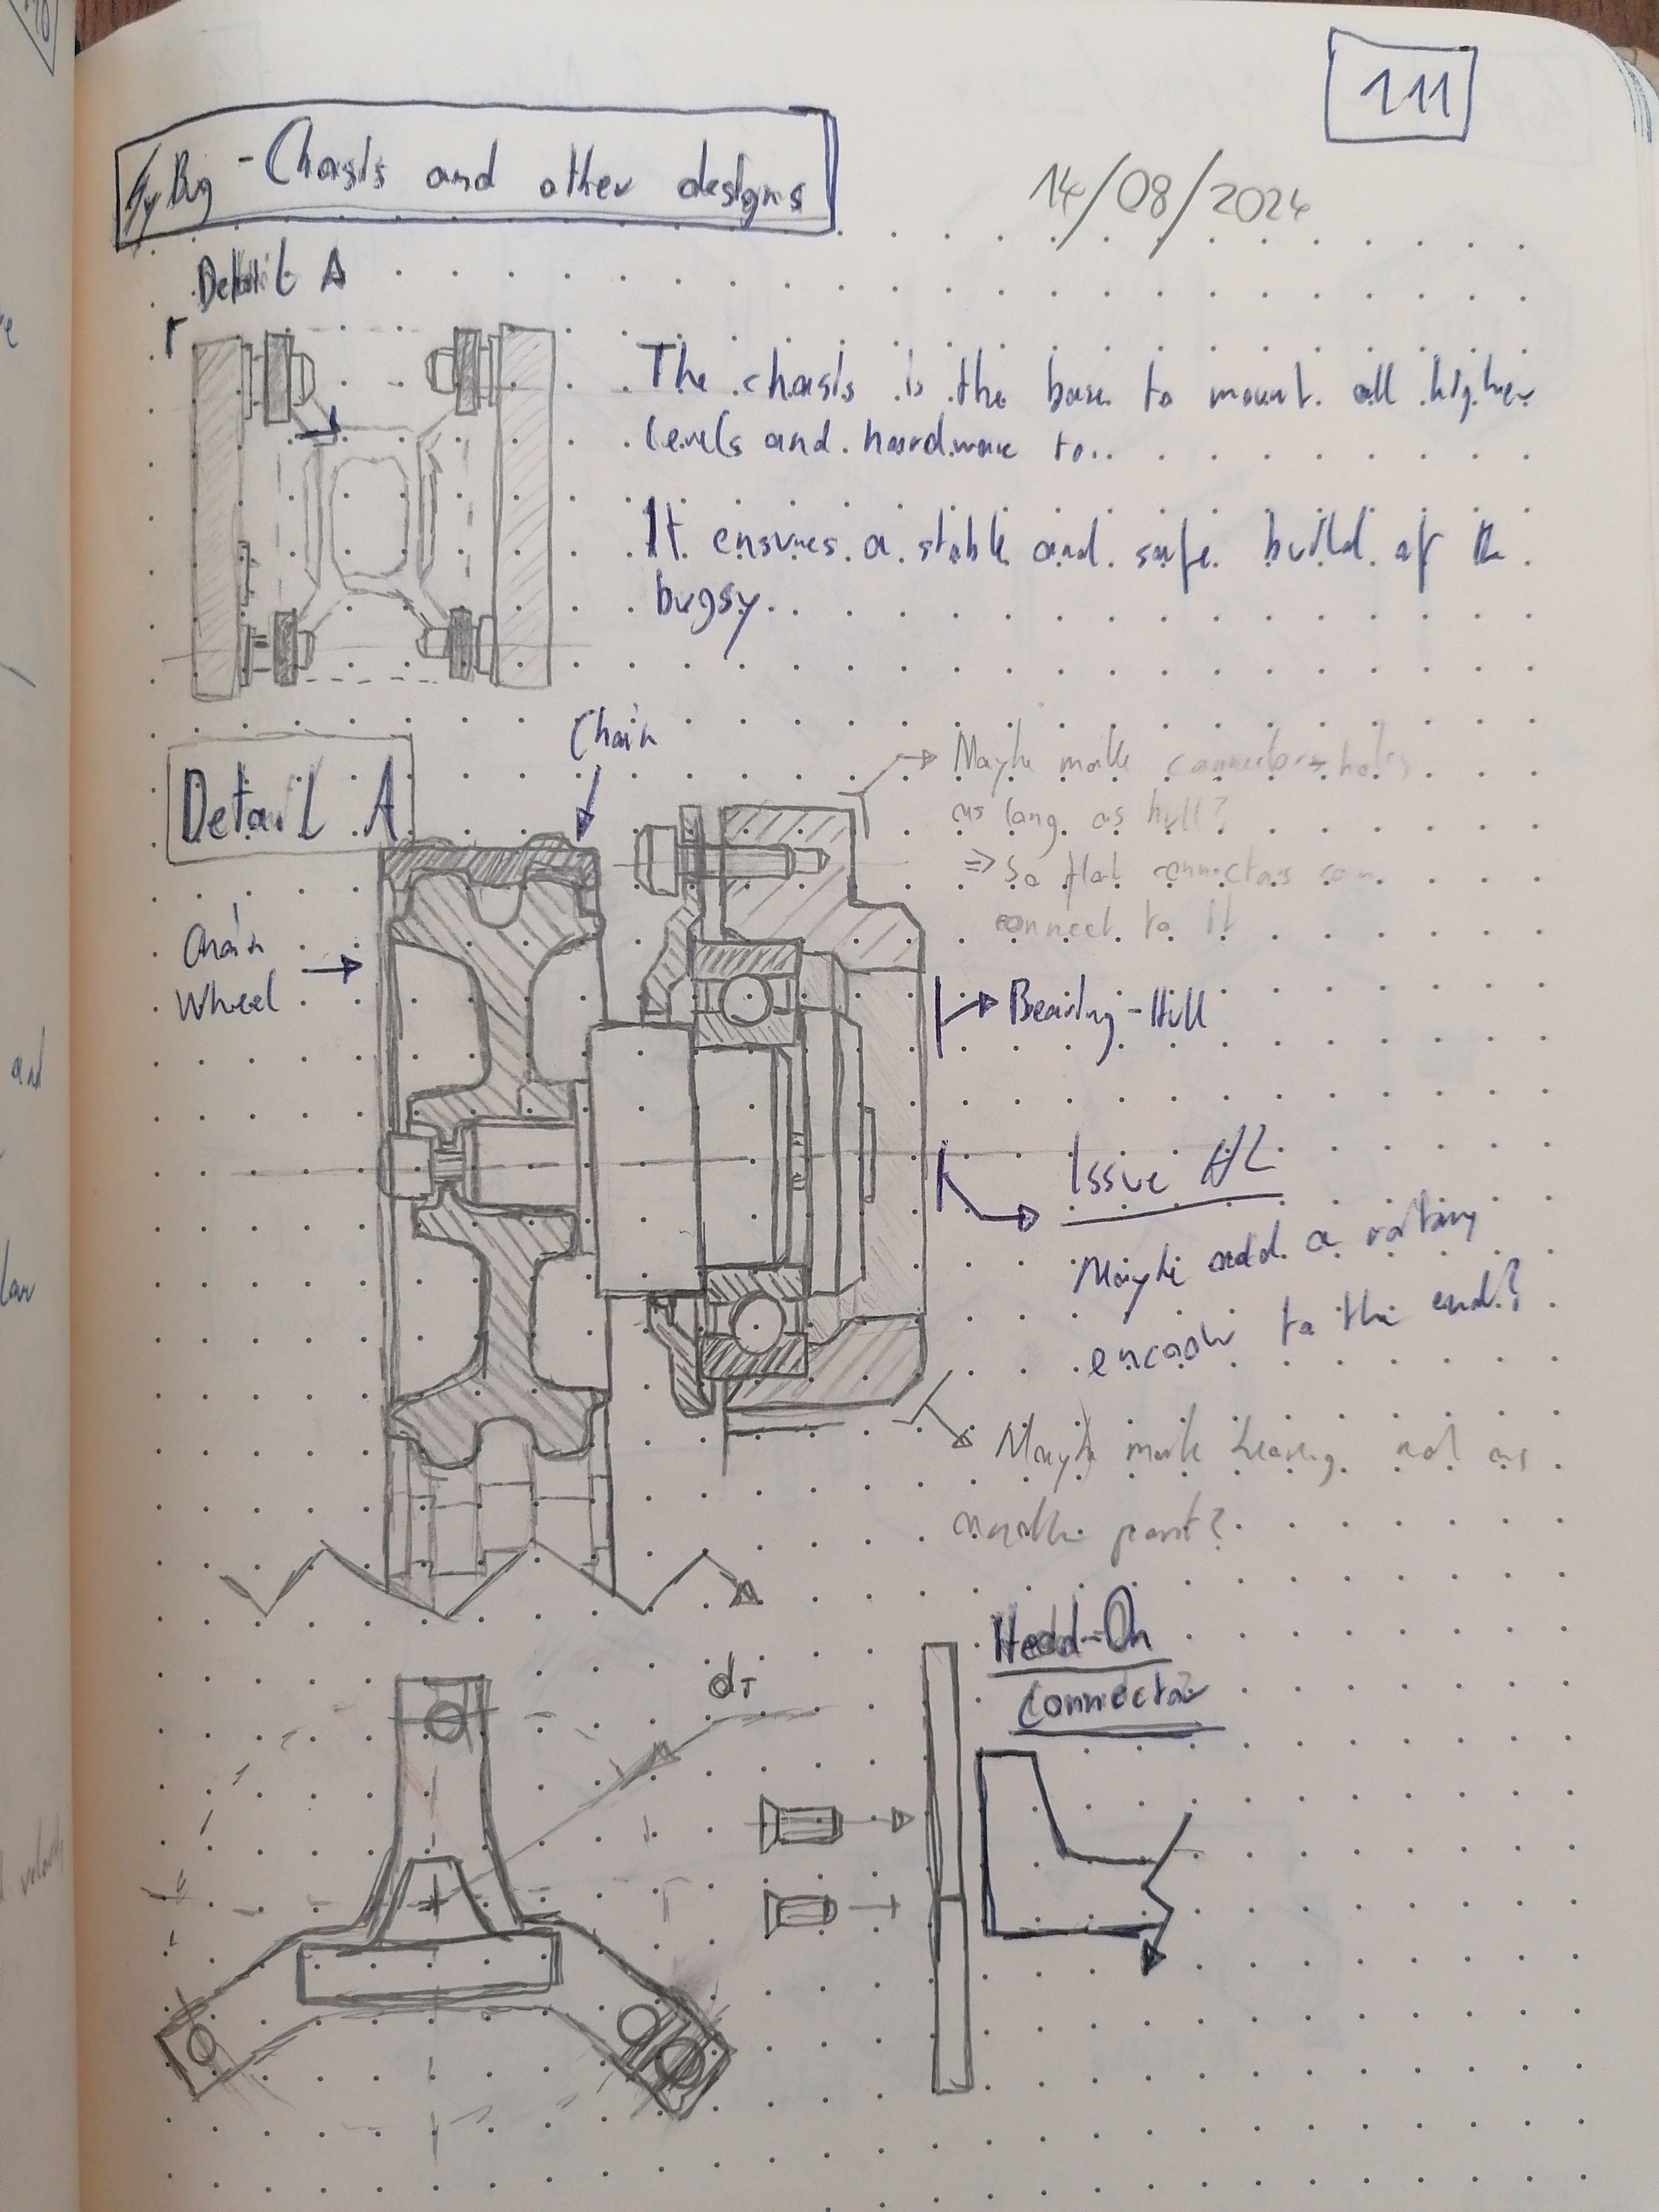 111
- Chasis and other designs
14/08/2024
Detail A
The chasis is the base to mount all higher
levels and hardware to.
It ensures a stable and safe build of the
bugsy.
Chain
Detail A
Maybe make connector-holes
as long as hull?
=> So flat connectors can
connect to it
Chain
Wheel
Bearing-Hull
Issue
Maybe add a rotary
encoder to the end?
Maybe make bearing not as
part?
Head-On
Connector
dT
and
velocity